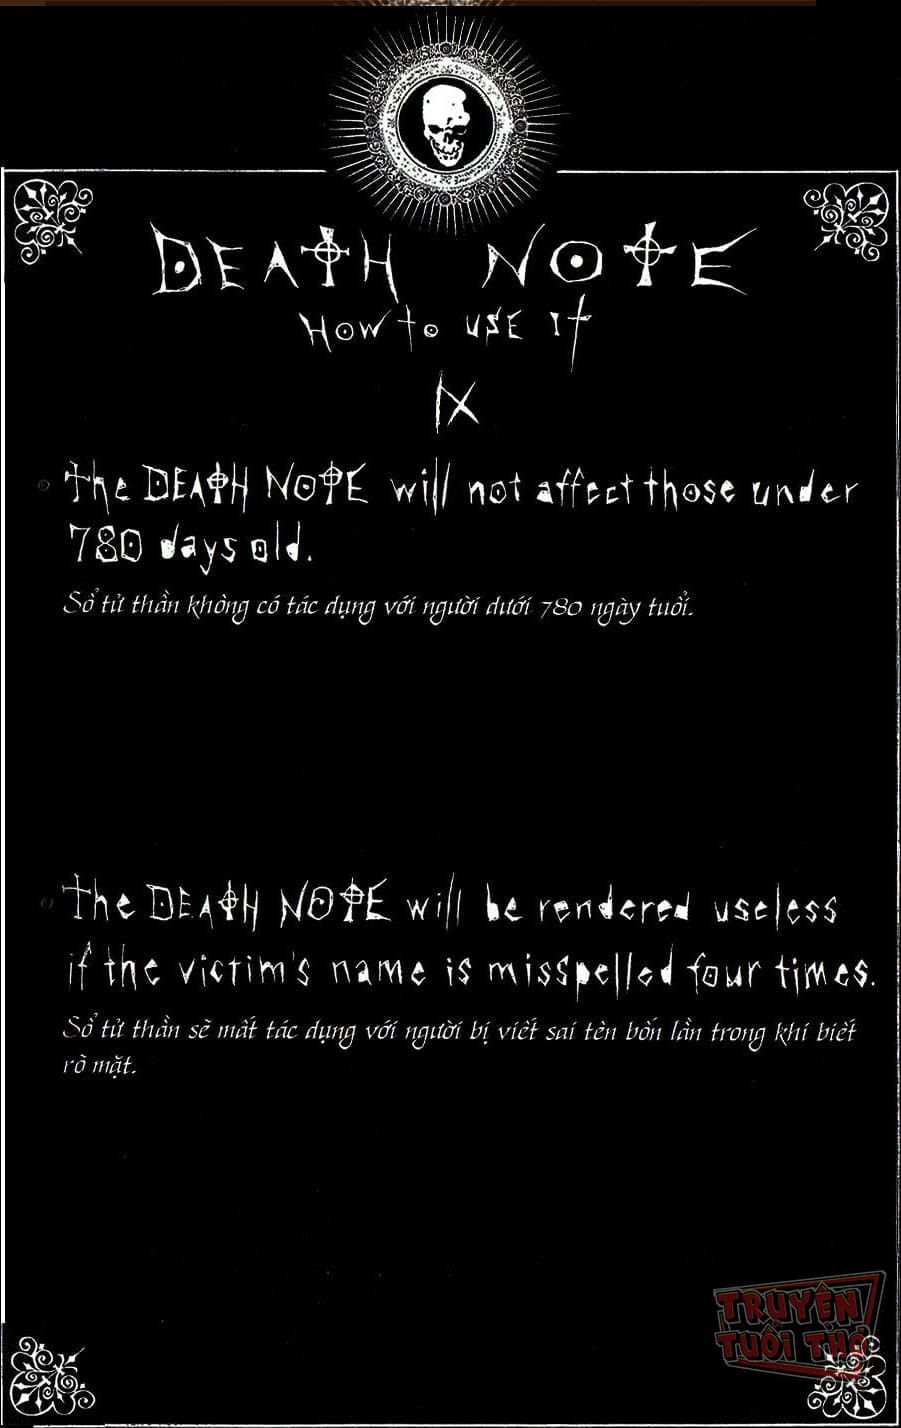 DEATH NOTE
HOW to USE It
IX
the DEATH NOTE will not affect those under
780 days old.
Sổ tử thần không có tác dụng với người dưới 780 ngày tuổi.
the DEATH NOTE will be rendered useless
if the victim's name is misspelled four times.
Sổ tử thần sẽ mất tác dụng với người bị viết sai tên bốn lần trong khi biết
rõ mặt.
TRUYỆN
TUỔI THƠ